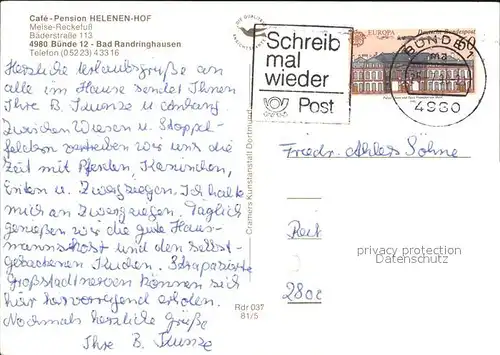 Café-Pension HELENEN-HOF
Meise-Reckefuß
Bäderstraße 113
4980 Bünde 12 - Bad Randringhausen
Telefon (05223) 43316
Herzliche Urlaubsgrüße an
alle im Hause sendet Ihnen
Ihre B. Kunze u. Anhang.
Zwischen Wiesen u. Stoppel-
feldern vertreiben wir uns die
Zeit mit Pferden, Kaninchen,
Enten u. Zwergziegen. Ich halte
mich an Zwergziegen. Täglich
genießen wir die gute Haus-
mannskost und den selbst-
gebackenen Kuchen. Strapazierte
Großstadtnerven können sich
hier hervorragend erholen.
Nochmals herzliche Grüße
Ihre B. Kunze
Cramers Kunstanstalt Dortmund
Rdr 037
81/5
Schreib
mal
wieder
Post
EUROPA
Deutsche Bundespost
60
BÜNDE 1
4980
Friedr. Ahlers Söhne
privacy protection
Datenschutz